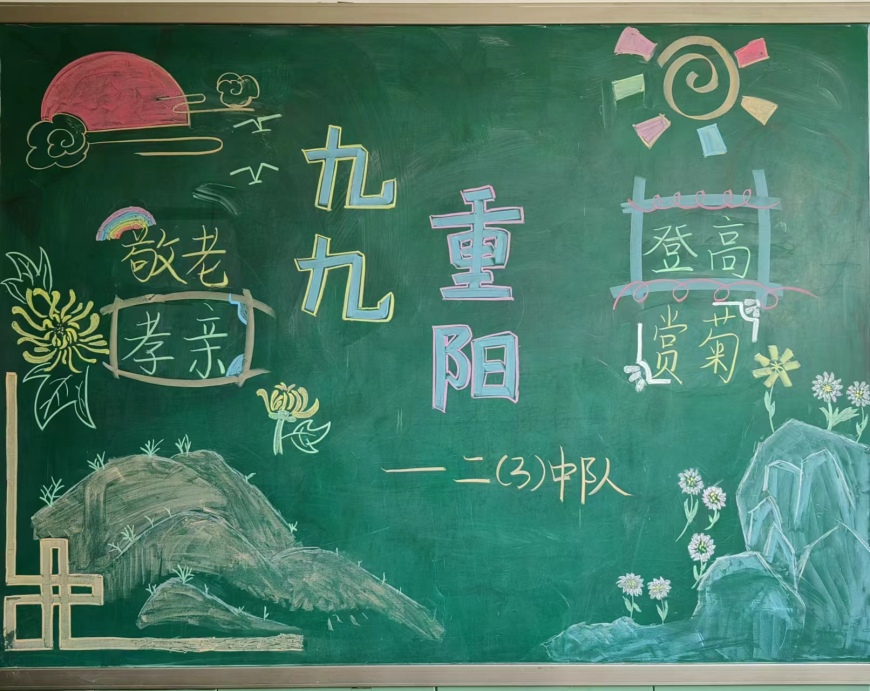 九九
重阳
敬老
孝亲
登高
赏菊
—二(3)中队